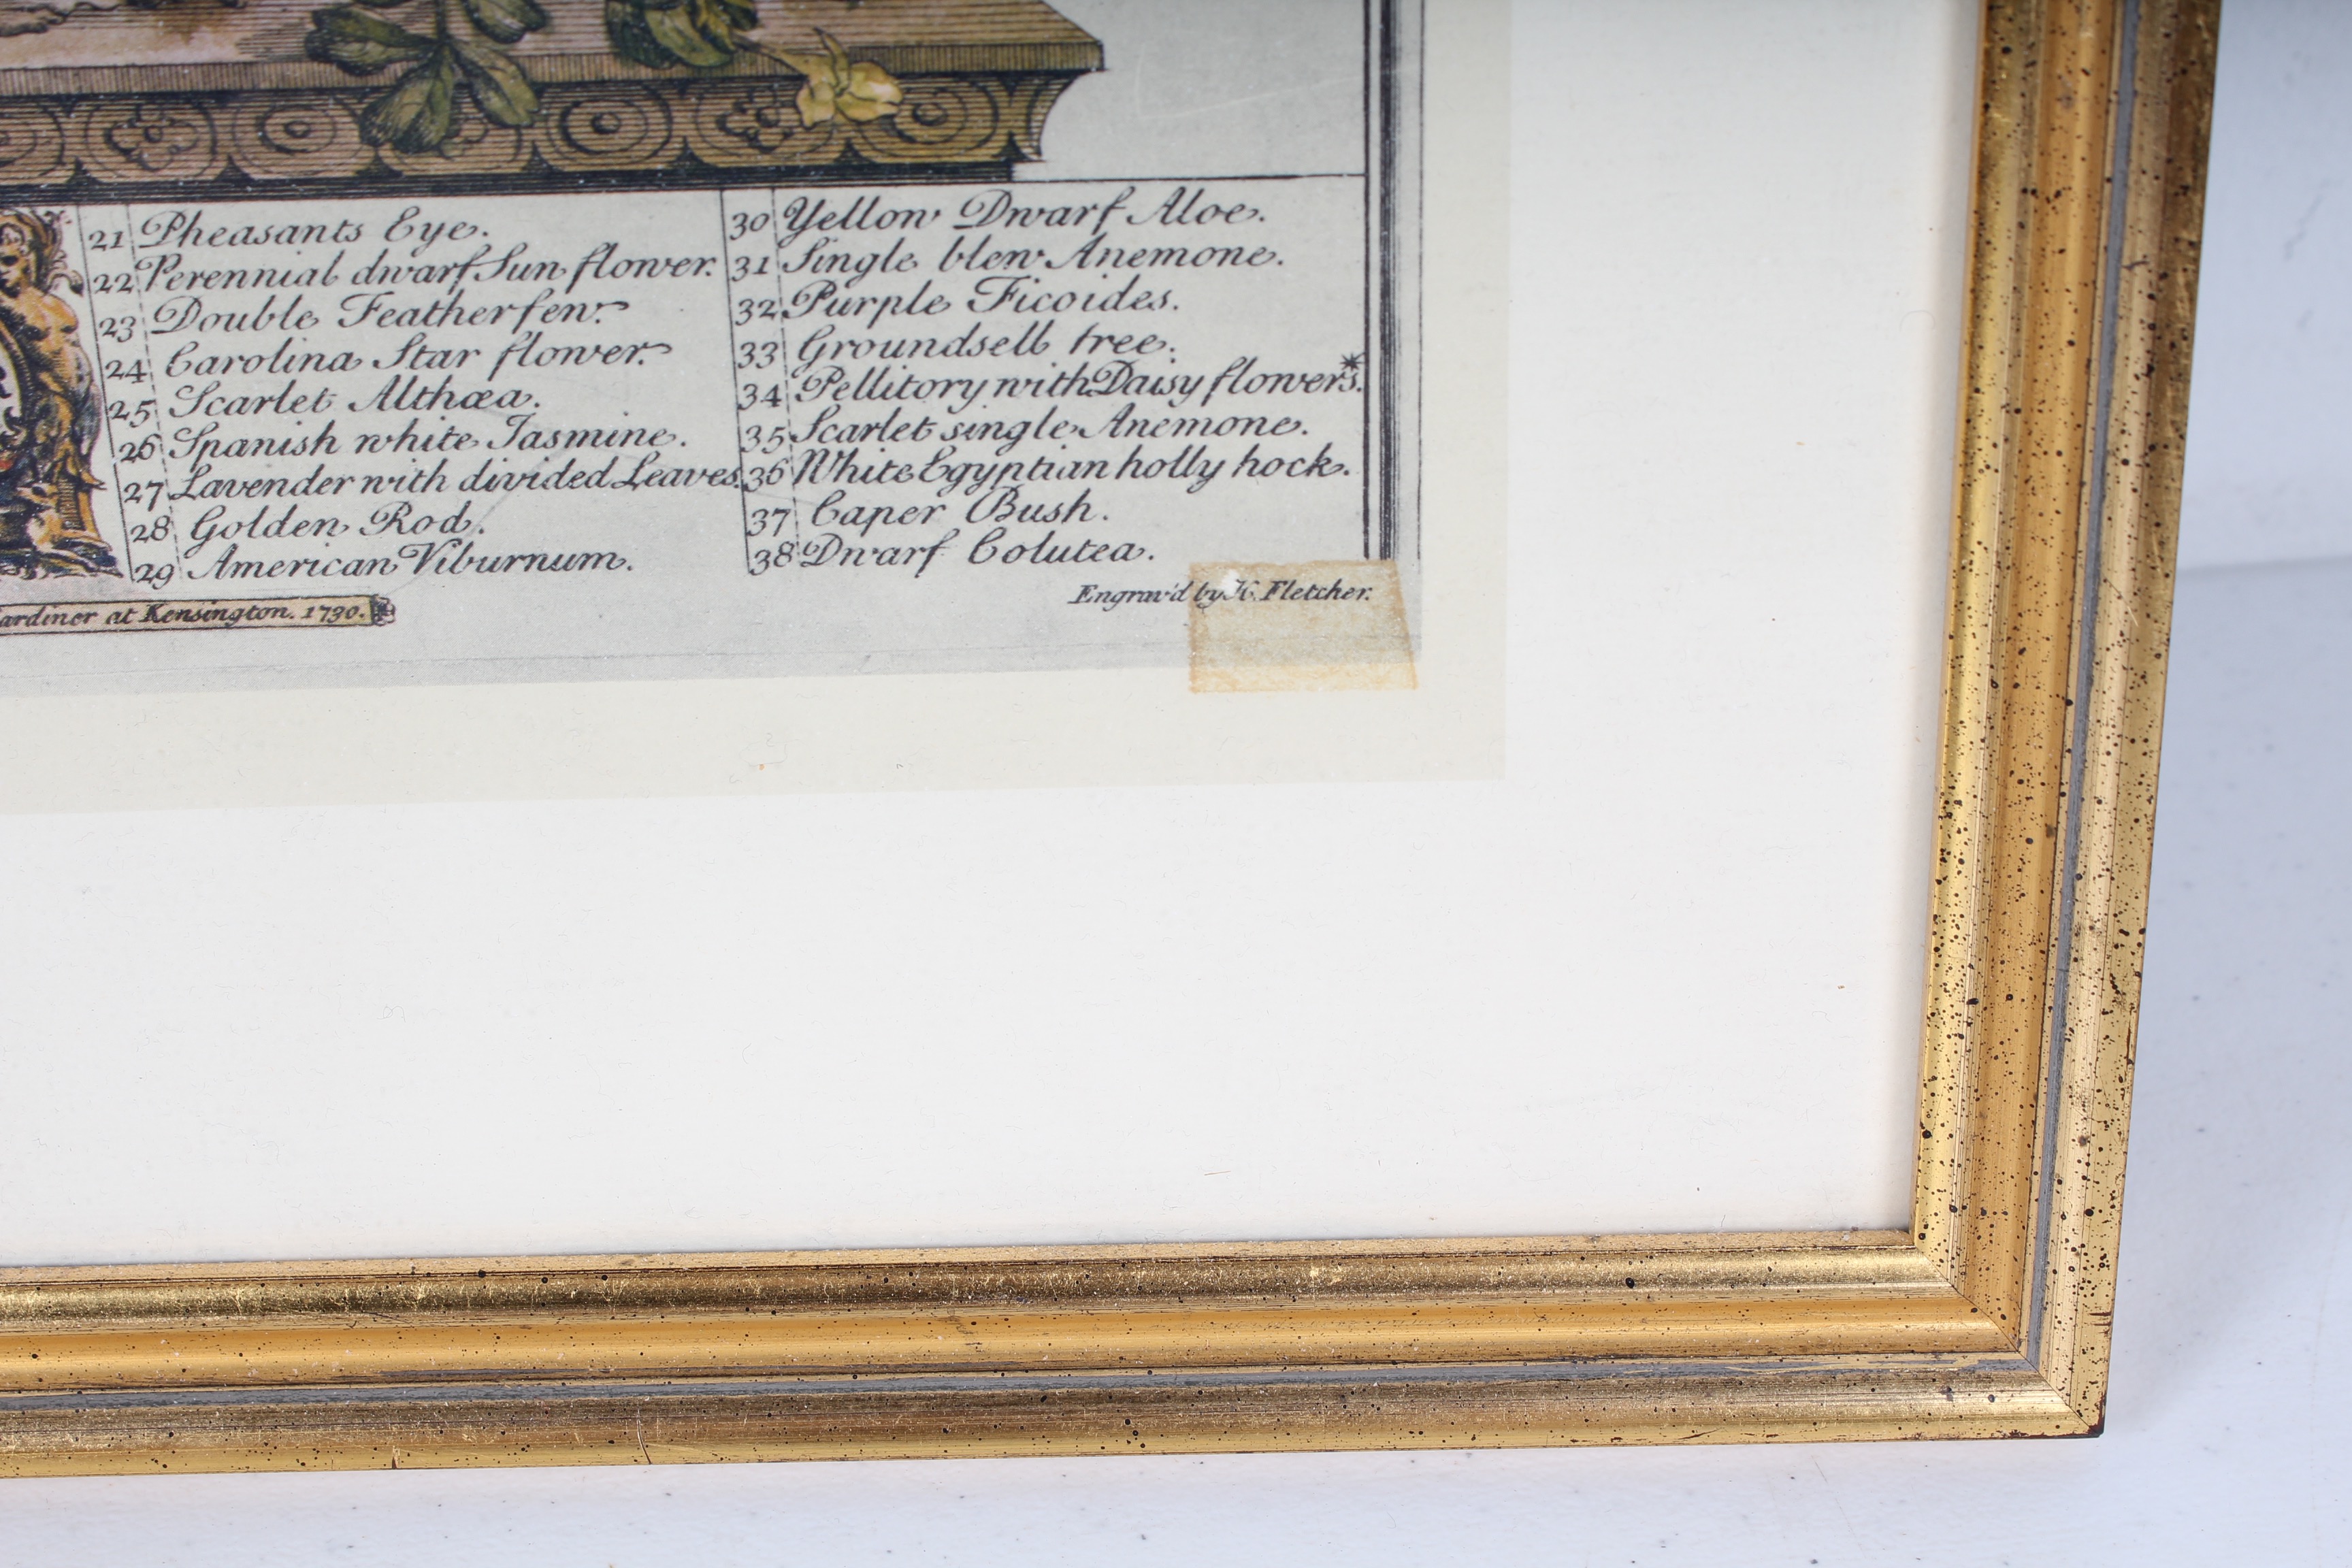 21 Pheasants Eye.
22 Perennial dwarf Sun flower.
23 Double Featherfew.
24 Carolina Star flower.
25 Scarlet Althæa.
26 Spanish white Jasmine.
27 Lavender with divided Leaves.
28 Golden Rod.
29 American Viburnum.
30 Yellow Dwarf Aloe.
31 Single blew Anemone.
32 Purple Ficoides.
33 Groundsell tree.
34 Pellitory with Daisy flowers.*
35 Scarlet single Anemone.
36 White Egyptian holly hock.
37 Caper Bush.
38 Dwarf Colutea.
Engrav'd by H. Fletcher.
ardiner at Kensington. 1730.